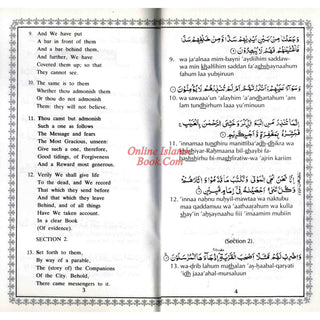 9. And We have put
A bar in front of them
And a bar behind them,
And further, We have
Covered them up; so that
They cannot see.
10. The same is to them
Whether thou admonish them
Or thou do not admonish
Them: they will not believe.
11. Thou canst but admonish
Such a one as follows
The Message and fears
The Most Gracious, unseen:
Give such a one, therefore,
Good tidings, of Forgiveness
And a Reward most generous.
12. Verily We shall give life
To the dead, and We record
That which they send before
And that which they leave
Behind, and of all things
Have We taken account.
In a clear Book
(Of evidence).
SECTION 2.
13. Set forth to them,
By way of a parable,
The (story of) the Companions
Of the City. Behold,
There came messengers to it.
3
وَجَعَلْنَا مِنْ بَيْنِ أَيْدِيهِمْ سَدًّا وَمِنْ خَلْفِهِمْ سَدًّا
فَأَغْشَيْنَاهُمْ فَهُمْ لَا يُبْصِرُونَ
9. wa ja'alnaa mim-bayni 'aydiihim saddaw-
wa min khalfihim saddan fa'aghshaynaahum
fahum laa yubsiruun
10. wa sawaaa'un 'alayhim 'a'andhartahum 'am
lam tundhirhum laa yu'minuun
11. 'innamaa tundhiru manittiba'adh-dhikra wa
khashiyar-Rahmaana bil ghaybi fa-
bashshirhu bi-maghfiratiw-wa 'ajrin kariim
12. 'innaa nahnu nuhyil-mawtaa wa naktubu
maa qaddamuu wa 'aathaarahum wa kulla
shay'in 'ahsaynaahu fiii 'imaamim mubiin
(Section 2).
13. wa-drib lahum mathalan 'as-haabal-qaryati
'idh jaaa'ahal-mursaluun
4
Online Islamic
Book.Com